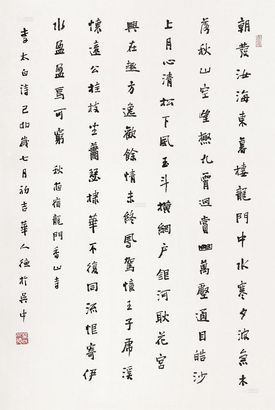 朝發汝海東暮棲龍門中水寒夕波急木
落秋山空望極九霄迥賞幽萬壑通目皓沙
上月心清松下風玉斗橫網戶銀河耿花宮
興在趣方逸歡餘情未終鳳駕憶王子虎溪
懷遠公桂枝坐蕭瑟棣華不復同流恨寄伊
水盈盈焉可窮 秋夜宿龍門香山寺
李太白詩己卯歲七月初吉華人德於吳中